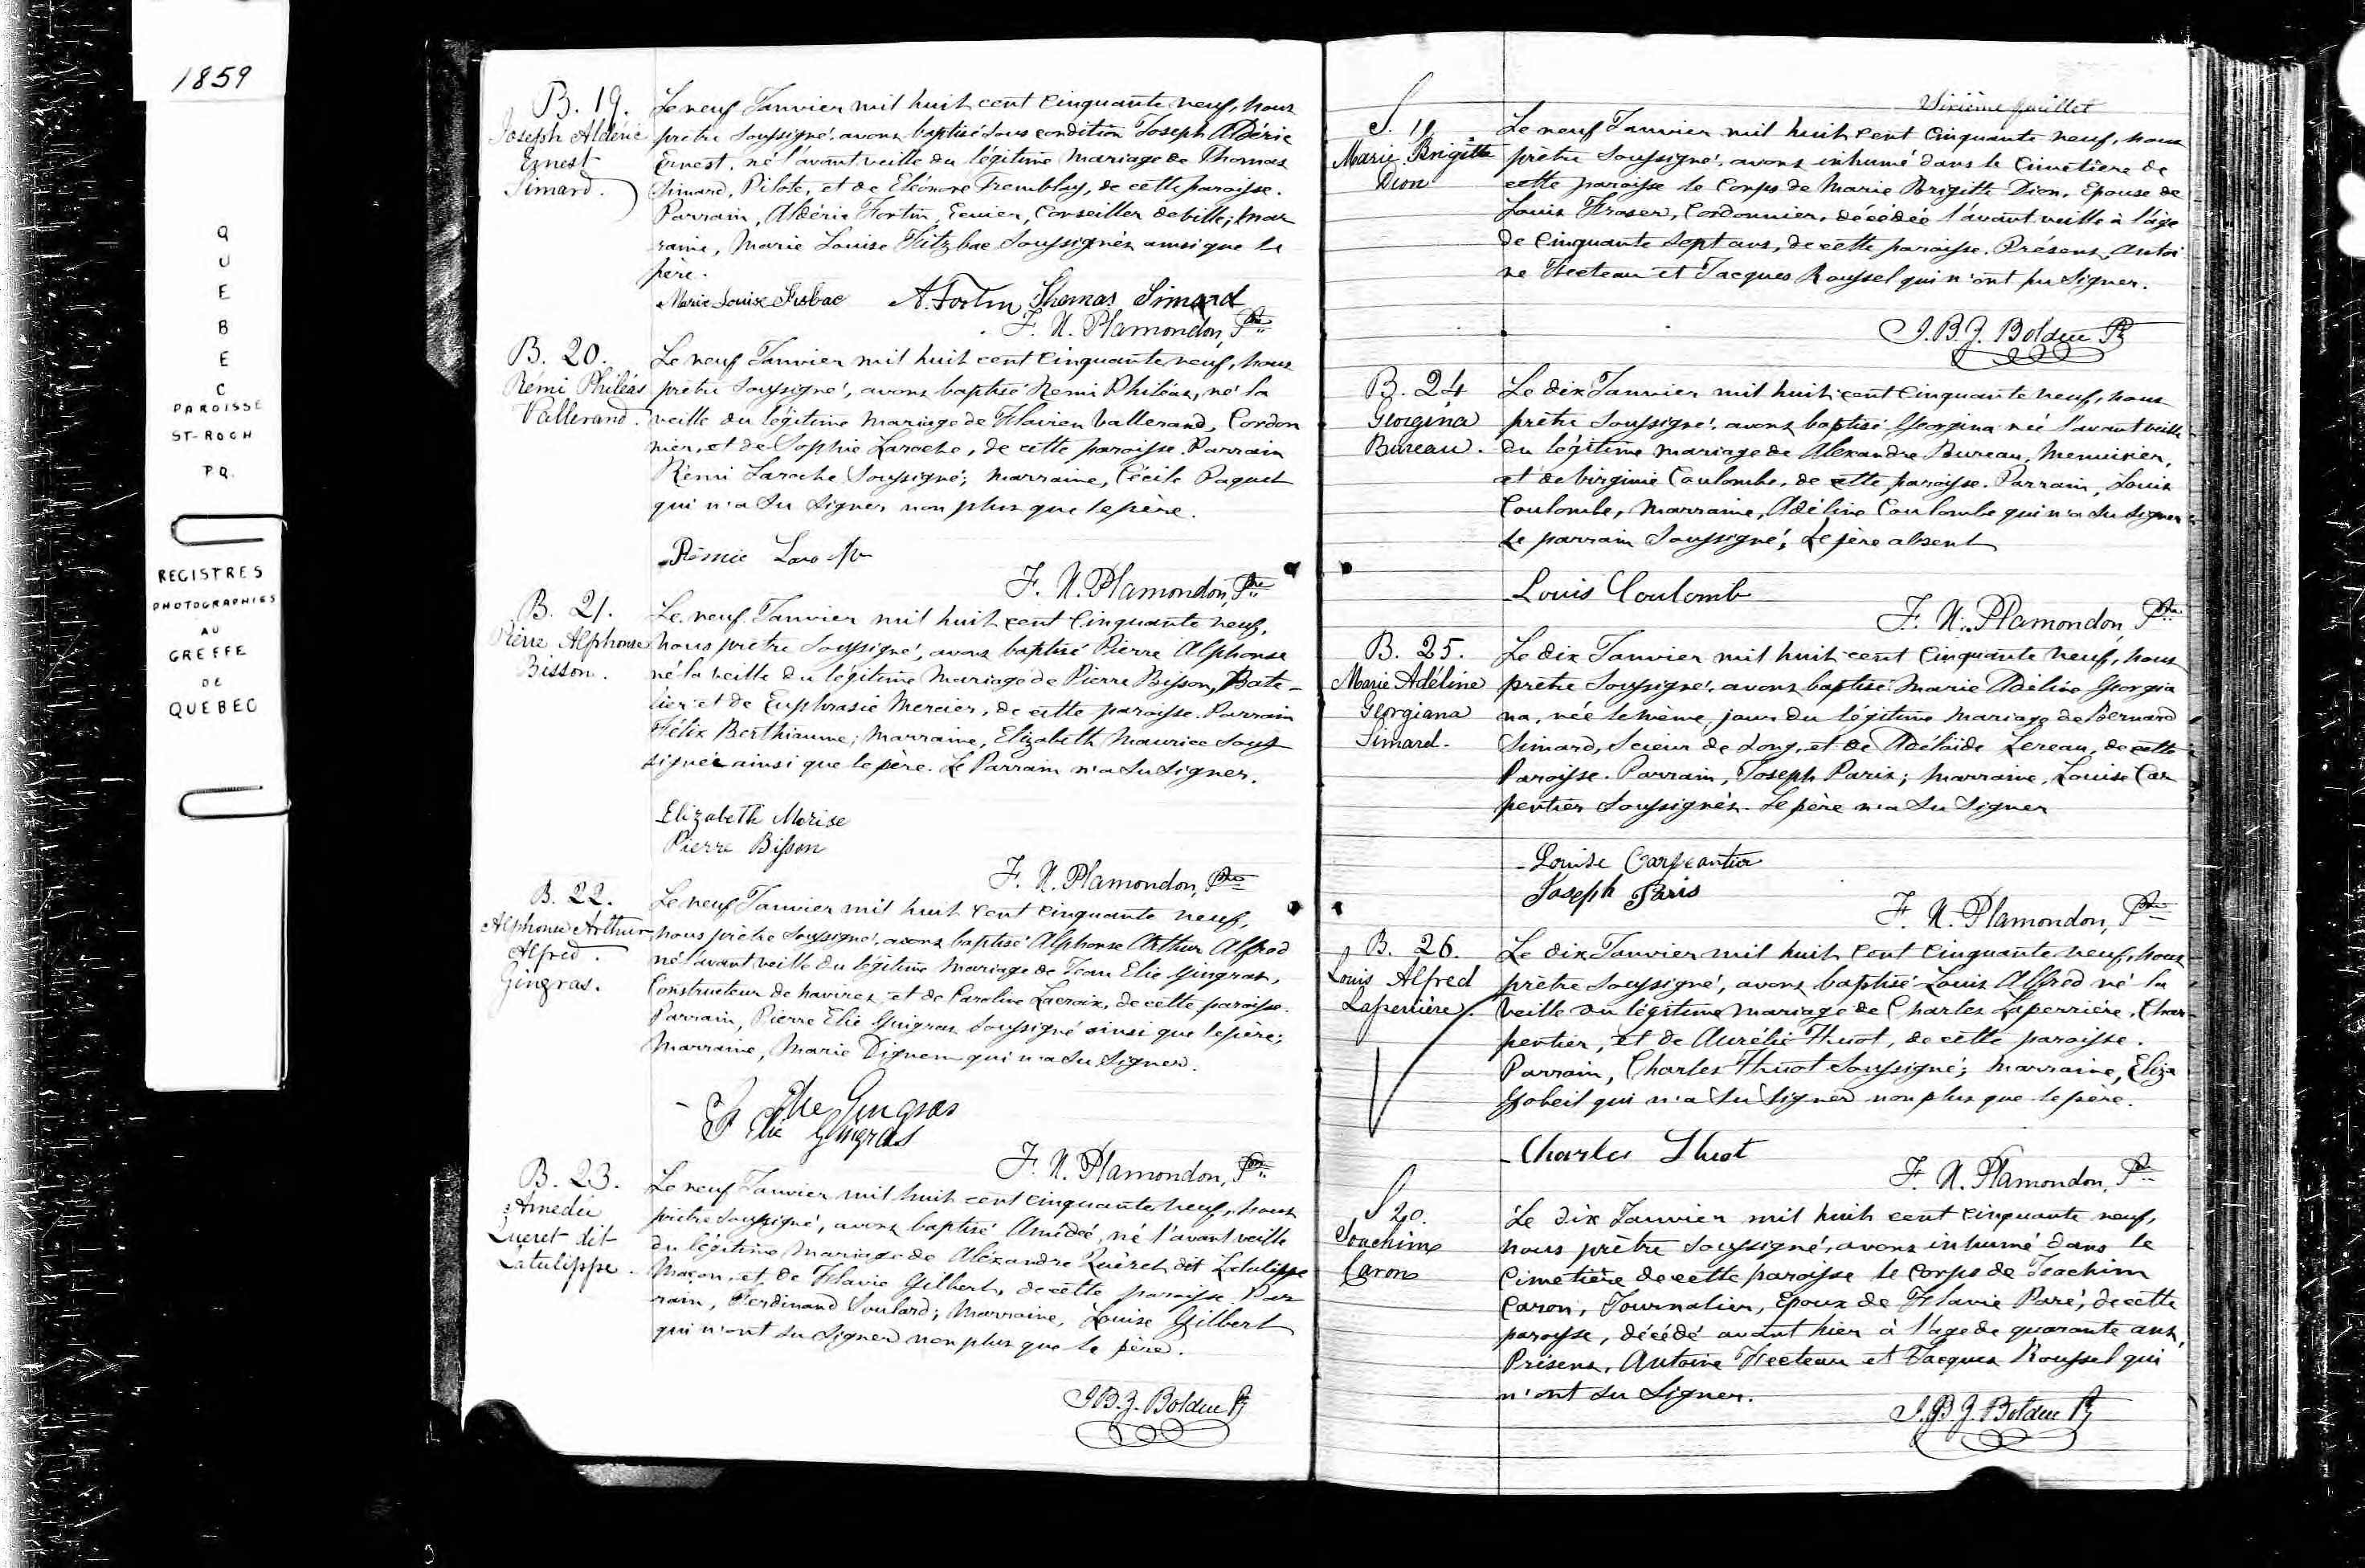 1859
QUEBEC
PAROISSE
ST-ROCH
P.Q.
REGISTRES
PHOTOGRAPHIES
AU
GREFFE
DE
QUEBEC
B. 19.
Joseph Aldéric
Ernest
Simard.
Le neuf Janvier mil huit cent cinquante neuf, nous
prêtre soussigné, avons baptisé sous condition Joseph Aldéric
Ernest, né l'avant veille du légitime mariage de Thomas
Simard, Pilote, et de Eléonore Tremblay, de cette paroisse.
Parrain, Aldéric Fortin, Ecuier, Conseiller de ville; mar
raine, Marie Louise Fitzbac soussignés ainsi que le
père.
Marie Louise Fisbac A. Fortin Thomas Simard
F. N. Plamondon, Ptre
B. 20.
Rémi Philéas
Vallerand.
Le neuf Janvier mil huit cent cinquante neuf, nous
prêtre soussigné, avons baptisé Remi Philéas, né la
veille du légitime mariage de Flavien Vallerand, Cordon
nier, et de Sophie Laroche, de cette paroisse. Parrain
Rémi Laroche soussigné; marraine, Cécile Paquet
qui n'a su signer non plus que le père.
Rémie
F. N. Plamondon, Ptre
B. 21.
Pierre Alphonse
Bisson.
Le neuf Janvier mil huit cent cinquante neuf,
nous prêtre soussigné, avons baptisé Pierre Alphonse
né la veille du légitime mariage de Pierre Bisson, Bate-
lier et de Euphrasie Mercier, de cette paroisse. Parrain
Félix Berthiaume; Marraine, Elizabeth Maurice sous
signée ainsi que le père. Le Parrain n'a su signer.
Elizabeth Morise
Pierre Bisson
F. N. Plamondon, Ptre
B. 22.
Alphonse Arthur
Alfred.
Gingras.
Le neuf Janvier mil huit cent cinquante neuf,
nous prêtre soussigné, avons baptisé Alphonse Arthur Alfred
né l'avant veille du légitime mariage de Jean Elie Gingras,
Constructeur de navires, et de Caroline Lacroix, de cette paroisse.
Parrain, Pierre Elie Gingras soussigné ainsi que le père;
Marraine, Marie Dignem qui n'a su signer.
Elie Gingras
Elie Gingras
F. N. Plamondon, Ptre
B. 23.
Amedée
Queret dit
Latulippe.
Le neuf Janvier mil huit cent cinquante neuf, nous
prêtre soussigné, avons baptisé Amédée, né l'avant veille
du légitime mariage de Alexandre Quéret dit Latulippe
Maçon, et de Flavie Gilbert, de cette paroisse. Par
rain, Ferdinand Soulard; Marraine, Louise Gilbert
qui n'ont su signer non plus que le père.
J.B.Z. Bolduc Pt
Sixième feuillet
S. 19
Marie Brigitte
Dion
Le neuf Janvier mil huit cent cinquante neuf, nous
prêtre soussigné, avons inhumé dans le Cimetière de
cette paroisse le corps de Marie Brigitte Dion, Epouse de
Louis Fraser, Cordonnier, décédée l'avant veille à l'âge
de cinquante sept ans, de cette paroisse. Présens, Antoi
ne Fecteau et Jacques Roussel qui n'ont pu signer.
J.B.Z. Bolduc Pt
B. 24
Georgina
Bureau.
Le dix Janvier mil huit cent cinquante neuf, nous
prêtre soussigné, avons baptisé Georgina née l'avant veille
du légitime mariage de Alexandre Bureau, Menuisier,
et de Virginie Coulombe, de cette paroisse. Parrain, Louis
Coulombe, Marraine, Adéline Coulombe qui n'a su signer
Le parrain soussigné; Le père absent
Louis Coulomb
F. N. Plamondon, Ptre
B. 25.
Marie Adéline
Georgiana
Simard.
Le dix Janvier mil huit cent cinquante neuf, nous
prêtre soussigné, avons baptisé Marie Adéline Georgia
na, née le même jour du légitime mariage de Bernard
Simard, Scieur de Long, et de Adélaïde Lereau, de cette
Paroisse. Parrain, Joseph Paris; marraine, Louise Car
pentier soussignés. Le père n'a su signer
Louise Carpeantier
Joseph Paris
F. N. Plamondon, Ptre
B. 26.
Louis Alfred
Laperrière.
Le dix Janvier mil huit cent cinquante neuf, nous
prêtre soussigné, avons baptisé Louis Alfred né la
veille du légitime mariage de Charles Laperrière, Char
pentier, et de Aurélie Thuot, de cette paroisse.
Parrain, Charles Thuot soussigné; marraine, Eliza
Gobeil qui n'a su signer non plus que le père.
Charles Thuot
F. N. Plamondon, Ptre
S 20.
Joachim
Caron
Le dix Janvier mil huit cent cinquante neuf,
nous prêtre soussigné, avons inhumé dans le
Cimetière de cette paroisse le corps de Joachim
Caron, Journalier, Epoux de Flavie Paré, de cette
paroisse, décédé avant hier à l'age de quarante ans.
Présens, Antoine Fecteau et Jacques Roussel qui
n'ont su signer.
J.B.Z. Bolduc Pt